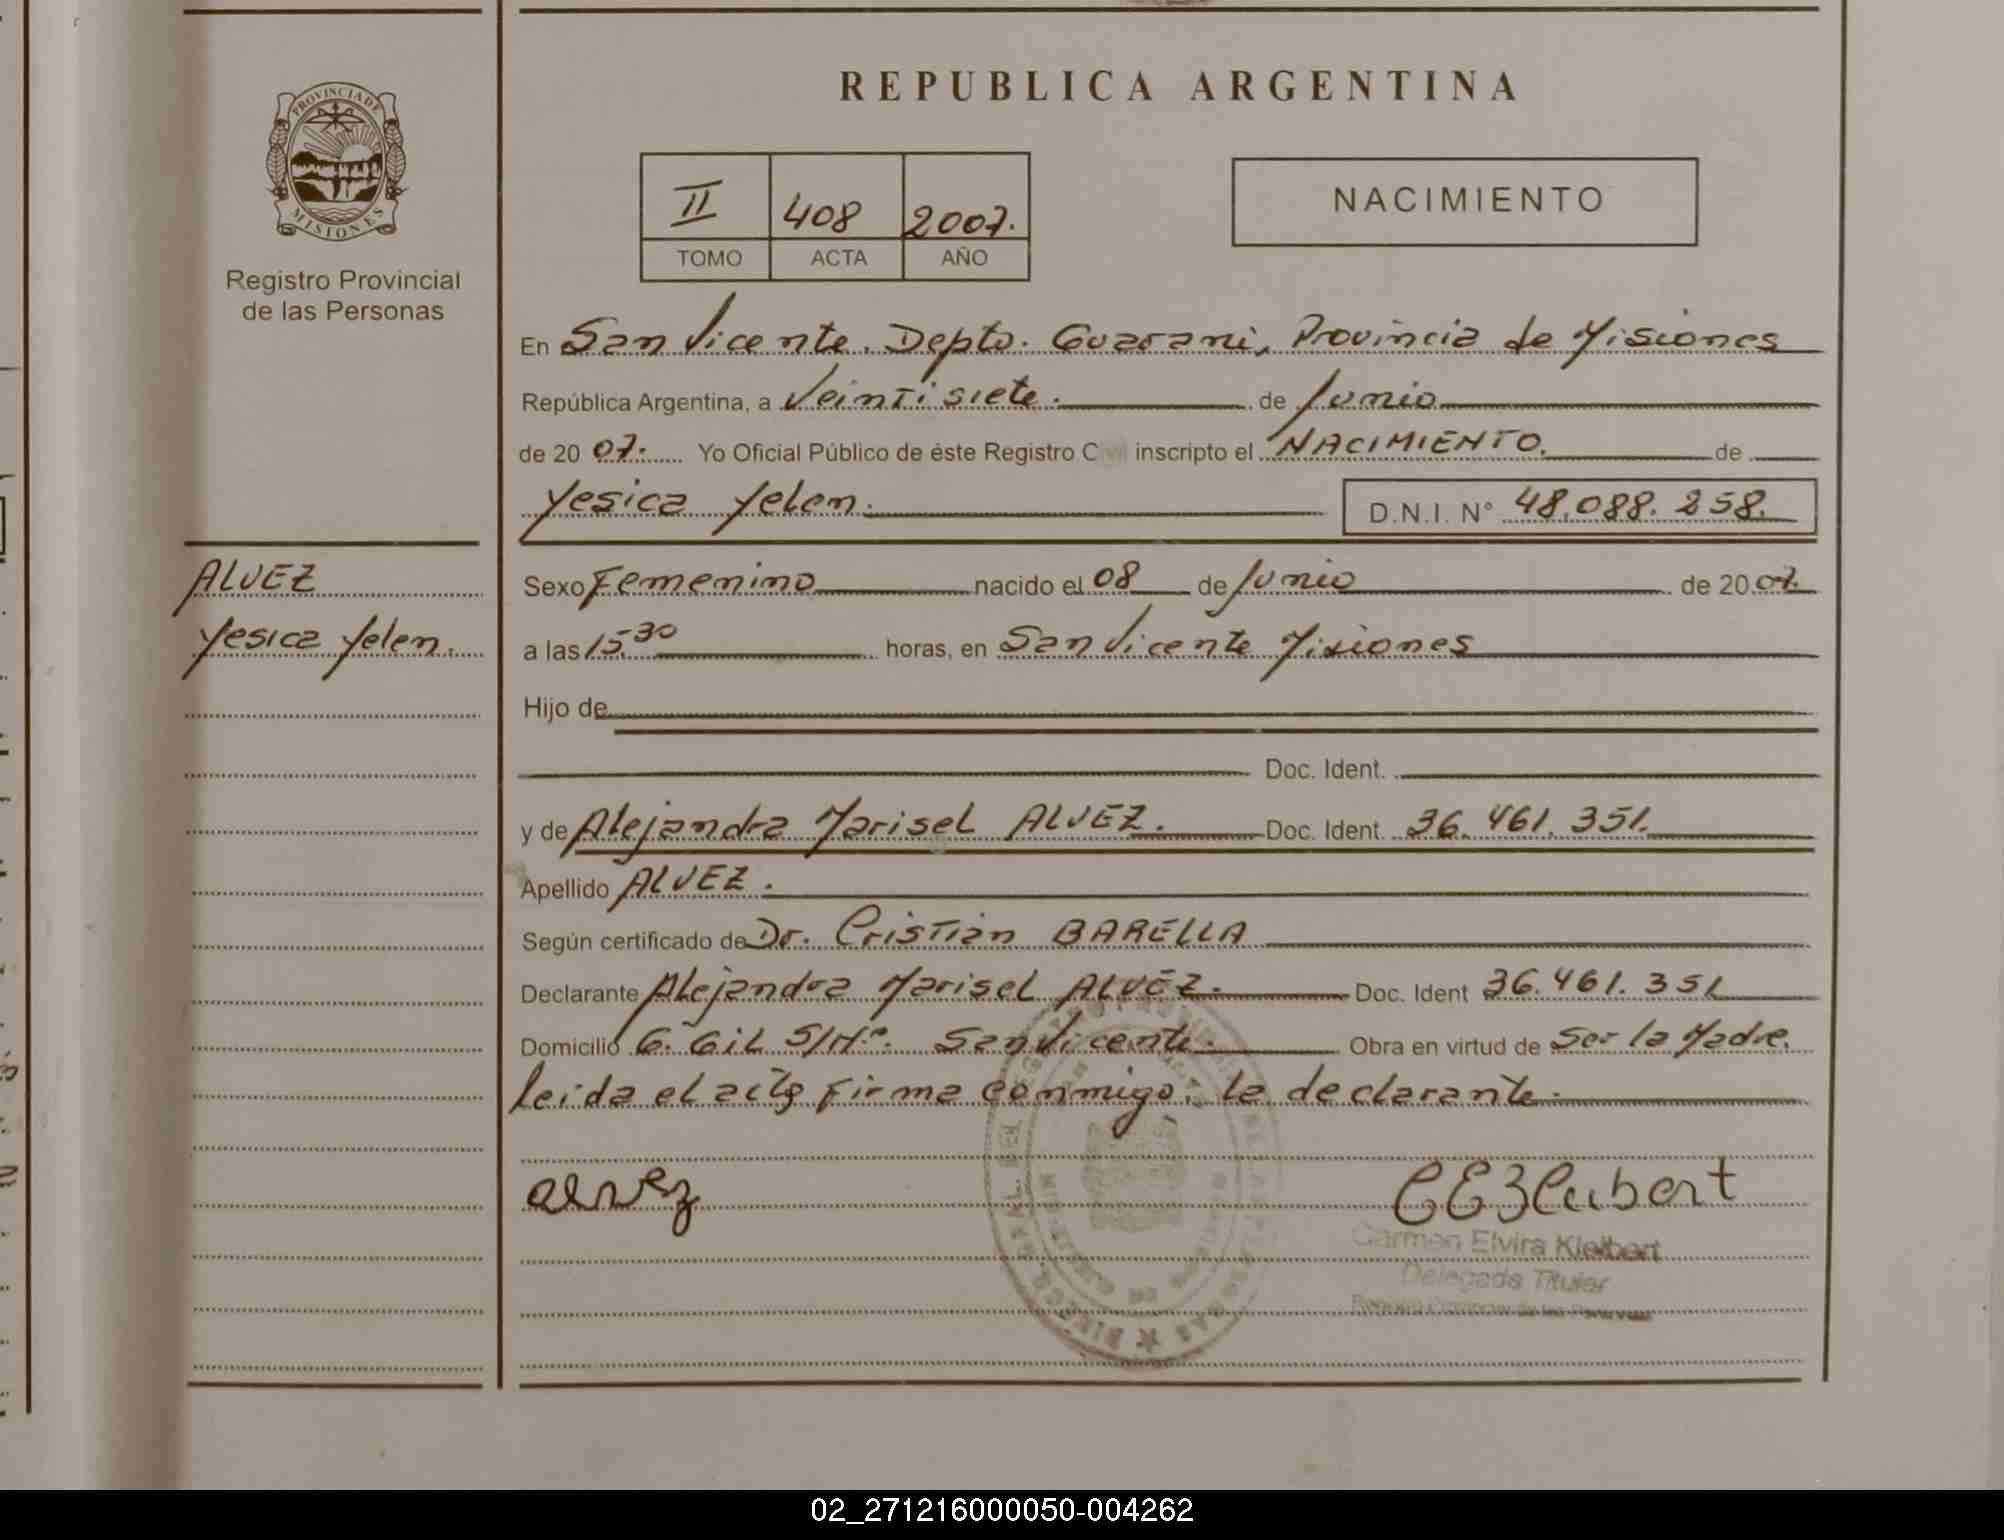 PROVINCIA DE
MISIONES
Registro Provincial
de las Personas
ALVEZ
Yesica Yelen.
REPUBLICA ARGENTINA
II 408 2007.
TOMO ACTA AÑO
NACIMIENTO
En San Vicente. Depto. Guarani, Provincia de Misiones
República Argentina, a Veintisiete. de Junio
de 20 07. Yo Oficial Público de éste Registro Civil inscripto el NACIMIENTO. de
Yesica Yelen. D.N.I. N° 48.088.258.
Sexo Femenino nacido el 08 de Junio de 20 07.
a las 15.30 horas, en San Vicente Misiones
Hijo de
Doc. Ident.
y de Alejandra Marisel ALVEZ. Doc. Ident. 36.461.351.
Apellido ALVEZ.
Según certificado de Dr. Cristian BARELLA
Declarante Alejandra Marisel ALVEZ. Doc. Ident 36.461.351
Domicilio G. GiL S/Nº. San Vicente. Obra en virtud de Ser la Madre.
Leida el acta Firma conmigo, la declarante.
alvez
Carmen Elvira Kleibert
Delegada Titular
Registro Provincial de las Personas
02_271216000050-004262